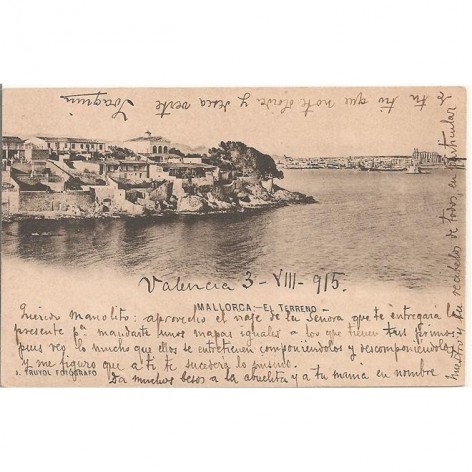 Valencia 3-VIII-915.
MALLORCA.-EL TERRENO
Querido Manolito: aprovecho el viaje de la Señora que te entregará la
presente pª mandarte unos mapas iguales a los que tienen tus primos
pues veo lo mucho que ellos se entretienen componiéndolos y descomponiéndolos
y me figuro que a ti te sucederá lo
J. TRUYOL FOTÓGRAFO
Da muchos besos a la abuelita y a tu mamá en nombre
nuestro y tu recíbelos de todos en particular
de tu tío que no te olvida y desea verte
Joaquin